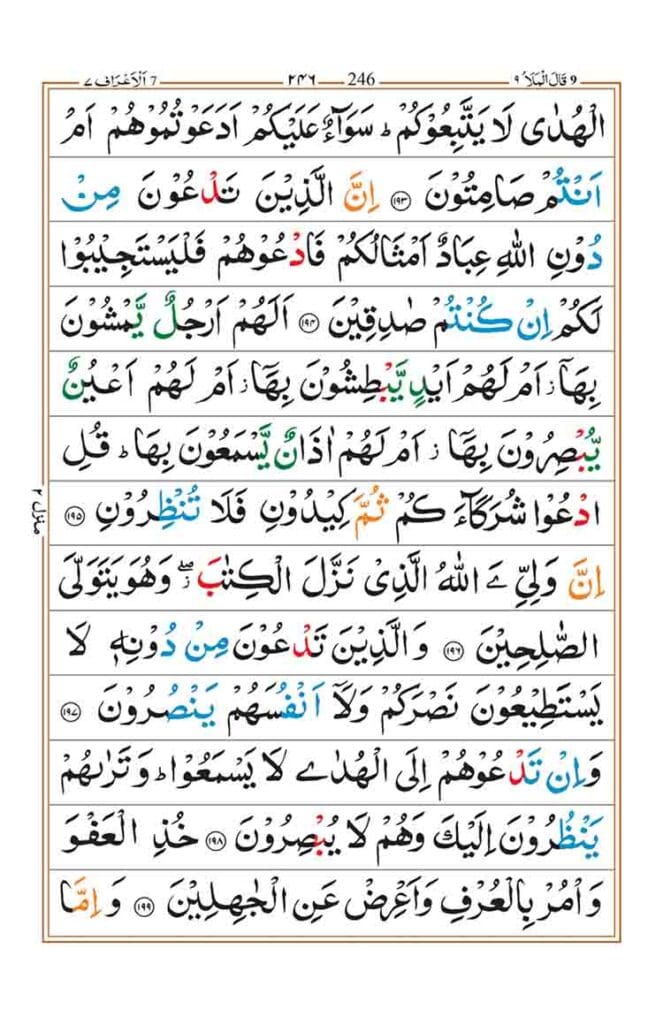 ٩ قَالَ الْمَلَاُ 9 246 ٢٤٦ اَلْاَعْرَاف ٧ 7
الْهُدٰى لَا يَتَّبِعُوْكُمْ ؕ سَوَآءٌ عَلَيْكُمْ اَدَعَوْتُمُوْهُمْ اَمْ
اَنْتُمْ صَامِتُوْنَ ﴿١٩٣﴾ اِنَّ الَّذِيْنَ تَدْعُوْنَ مِنْ
دُوْنِ اللّٰهِ عِبَادٌ اَمْثَالُكُمْ فَادْعُوْهُمْ فَلْيَسْتَجِيْبُوْا
لَكُمْ اِنْ كُنْتُمْ صٰدِقِيْنَ ﴿١٩٤﴾ اَلَهُمْ اَرْجُلٌ يَّمْشُوْنَ
بِهَاۤ ؗ اَمْ لَهُمْ اَيْدٍ يَّبْطِشُوْنَ بِهَاۤ ؗ اَمْ لَهُمْ اَعْيُنٌ
يُّبْصِرُوْنَ بِهَاۤ ؗ اَمْ لَهُمْ اٰذَانٌ يَّسْمَعُوْنَ بِهَا ؕ قُلِ
ادْعُوْا شُرَكَآءَ كُمْ ثُمَّ كِيْدُوْنِ فَلَا تُنْظِرُوْنِ ﴿١٩٥﴾
اِنَّ وَلِيِّ ےَ اللّٰهُ الَّذِىْ نَزَّلَ الْكِتٰبَ ۖؗ وَهُوَ يَتَوَلَّى
الصّٰلِحِيْنَ ﴿١٩٦﴾ وَالَّذِيْنَ تَدْعُوْنَ مِنْ دُوْنِهٖ لَا
يَسْتَطِيْعُوْنَ نَصْرَكُمْ وَلَاۤ اَنْفُسَهُمْ يَنْصُرُوْنَ ﴿١٩٧﴾
وَاِنْ تَدْعُوْهُمْ اِلَى الْهُدٰے لَا يَسْمَعُوْا ؕ وَتَرٰٮهُمْ
يَنْظُرُوْنَ اِلَيْكَ وَهُمْ لَا يُبْصِرُوْنَ ﴿١٩٨﴾ خُذِ الْعَفْوَ
وَاْمُرْ بِالْعُرْفِ وَاَعْرِضْ عَنِ الْجٰهِلِيْنَ ﴿١٩٩﴾ وَاِمَّا
منزل ٢